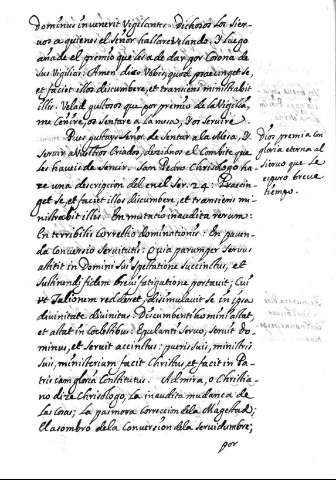 dominus invenerit Vigilantes. Dichosos los Sier-
vos a quienes el Señor hallare Velando. Y luego
añade el premio que les a de dar por Corona de
sus Vigilias: Amen dico Vobis, quod praecinget se,
et faciet illos discumbere, et transiens ministrabit
illis. Velad gustosos que por premio de la Vigilia,
me Ceñire, os sentare a la mesa, y os servire.
Pues gustais Señor de Sentar a la Mesa, y
Servir a Vuestros Criados, dezidnos el Combite que
les haveis de Servir. San Pedro Chrisologo ha-
ze una descripcion del en el Ser. 24: Praecin-
get se, et faciet illos discumbere, et transiens mi-
nistrabit illis. En mutatio inaudita rerum:
En terribilis Correctio dominationis: En paven-
da Conversio Servitutis: Quia parumper Servus
astitit in Domini sui Expectatione succinctus, et
sustinendi fidem brevi fatigatione portavit; Cui
ut Talionem redderet, dissimulavit se in ipsa
divinitate divinitas. Discumbenti homini astat,
et astat in Caelestibus: Epulanti servo, servit do-
minus, et servit accinctus: pueris suis, ministris
suis, ministerium facit Christus et facit in Pa-
tris iam gloria Constitutus. Admira, o Christia-
no dize Chrisologo, la inaudita mudança de
las Cosas; La pasmosa Correccion de la Magestad;
El asombro de la Conversion de la servidumbre;
por
Dios premia con
gloria eterna al
siervo que le
siguio breve
tiempo.